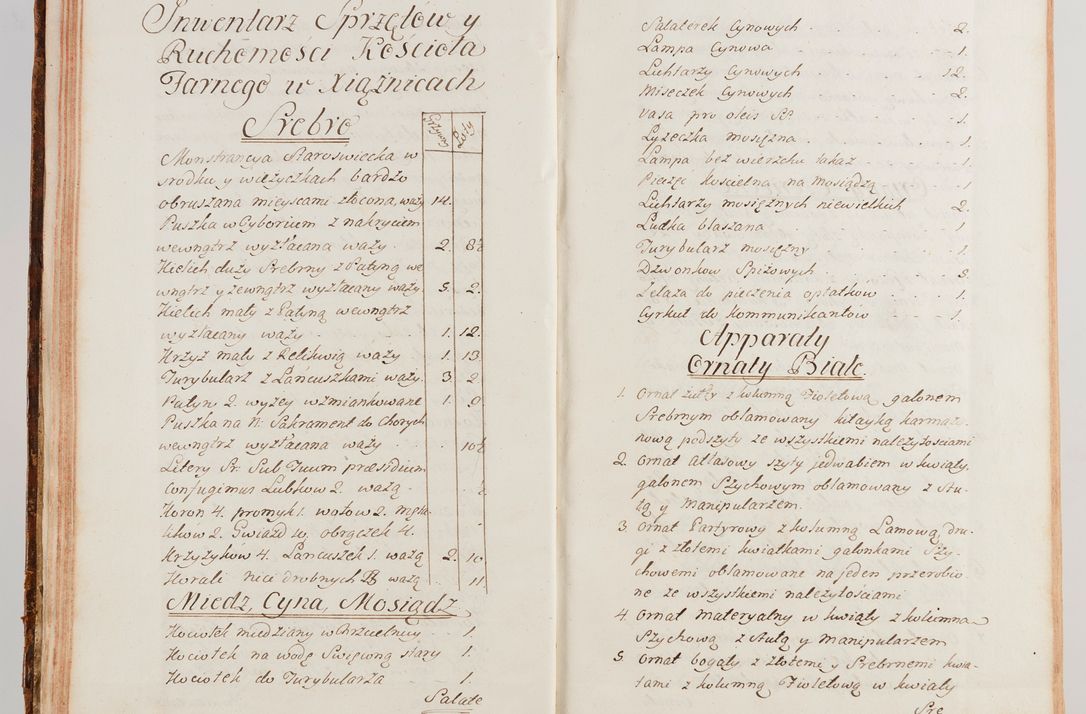 Inwentarz Sprzętów y
Ruchomości Kościoła
Farnego w Xiąźnicach
Srebro
Grzywny Łoty
Monstrancya Staroswiecka w
srodku y wieżyczkach bardzo
obruszana mieyscami złocona, waży 14.
Puszka w Cyborium z nakryciem
wewnątrz wyzłacana waży . 2. 8½
Kielich duży Srebrny z Patyną we
wnątrz y zewnątrz wyzłacany waży. 5. 2.
Kielich mały z Patyną wewnątrz
wyzłacany waży . 1. 12.
Krzyż mały z Relikwią waży 1. 13
Turybularz z Łancuszkami waży. 3. 2
Patyn 2. wyzey wzmiankowane 1. 9
Puszka na N: Sakrament do Chorych
wewnątrz wyzłacana waży . 10½
Litery Sr. Sub Tuum præsidium
Confugimus Lubkow 2. ważą . ½
Koron 4. promyk 1. wołow 2. męż
kikow 2. Gwiazd 10. obrączek 4.
Krzyżyków 4. Łancuszek 1. ważą 2. 10
Korali nici drobnych ważą 11
Miedz, Cyna, Mosiądz
Kociołek miedziany w Chrzcielnicy . . 1.
Kociołek na wodę Swięconą stary 1.
Kociołek do Turybularza . . 1.
Salate
Salaterek Cynowych . . . . 2.
Lampa Cynowa . . . . 1.
Lichtarzy Cynowych . . . 12.
Miseczek Cynowych . . . 2.
Vasa pro oleis SS. . . . 1.
Łyżeczka mosiężna . . . 1.
Lampa bez wierzchu takaż . . . 1.
Pieczęć kościelna na Mosiądzą . . 1
Lichtarzy mosiężnych niewielkich 2.
Ludka blaszana . . . 1
Turybularz mosiężny . . . 1.
Dzwonkow Spiżowych . . . 5.
Żelaza do pieczenia opłatków . . . 1.
Cyrkuł do Kommunikantów . . . 1.
Apparaty
Ornaty Białe.
1. Ornat żułty z kolumną Fioletową galonem
Srebrnym oblamowany kitayką karmazy-
nową podszyty ze wszystkiemi należytościami
2. Ornat atlasowy szyty jedwabiem w kwiaty,
galonem Szychowym oblamowany z Stu-
łą y Manipularzem.
3 Ornat Partyrowy z kolumną Lamową, dru-
gi z złotemi kwiatkami galonkami Szy-
chowemi oblamowane na jeden przerobio-
ne ze wszystkiemi należytościami
4. Ornat materyalny w kwiaty z kolumną
Szychową z Stułą y Manipularzem
5. Ornat bogaty z złotemi y Srebrnemi kwia-
tami z kolumną Fioletową w kwiaty
Sre